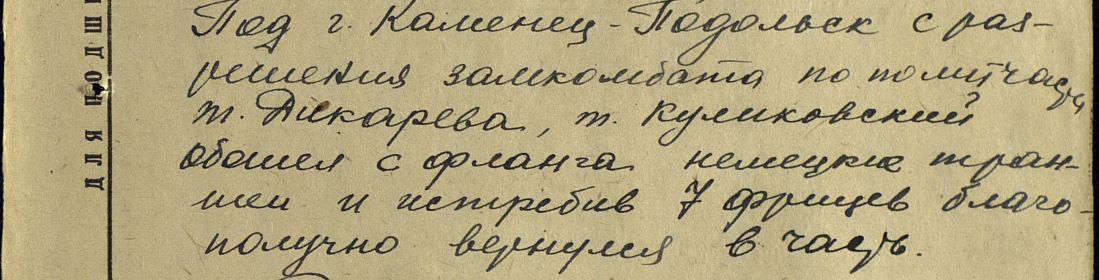 Под г. Каменец-Подольск с раз-
решения замкомбата по политчасти
т. Дикарева, т. Куликовский
обошел с фланга немецкие тран-
шеи и истребив 7 фрицев благо-
получно вернулся в часть.
ДЛЯ ПОДШИ